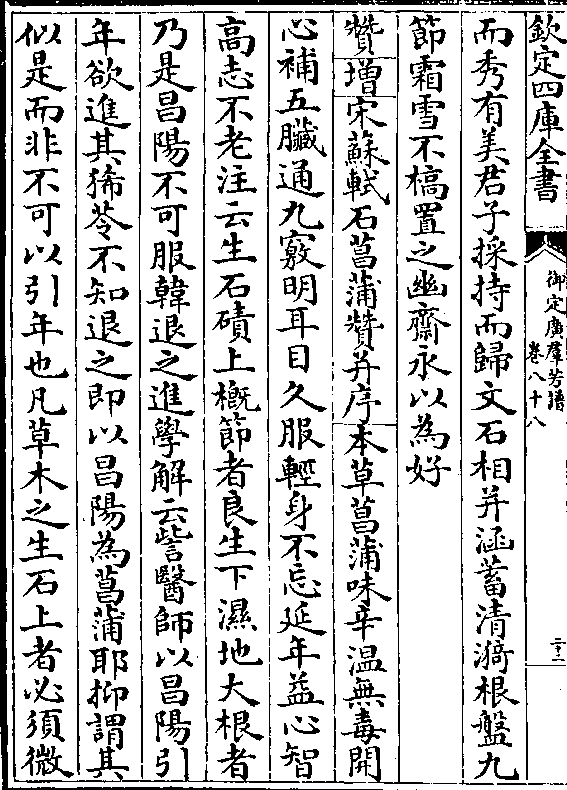 欽定四庫全書
御定廣羣芳譜
卷八十八
二十二
而秀有美君子採持而歸文石相并涵蓄清漪根盤九
節霜雪不槁置之幽齋永以為好
贊增宋蘇軾石菖蒲贊并序本草菖蒲味辛温無毒開
心補五臟通九竅明耳目久服輕身不忘延年益心智
高志不老注云生石磧上概節者良生下濕地大根者
乃是昌陽不可服韓退之進學解云訾醫師以昌陽引
年欲進其豨苓不知退之即以昌陽為菖蒲耶抑謂其
似是而非不可以引年也凡草木之生石上者必須微